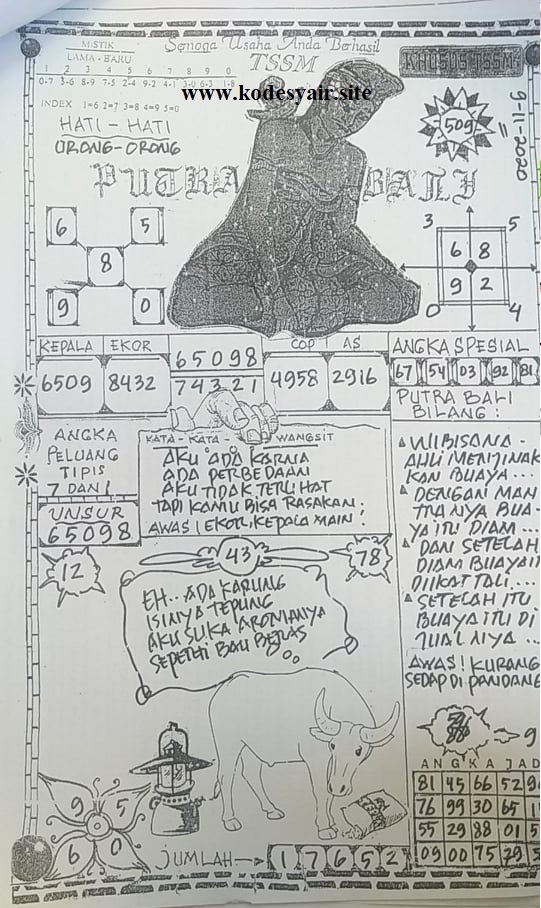 MISTIK
LAMA - BARU
1 2 3 4 5 6 7 8 9 0
0-7 3-6 8-9 7-5 2-4 9-2 4-1 3-0 6-3 1-8
INDEX 1=6 2=7 3=8 4=9 5=0
HATI - HATI
ORONG-ORONG
Semoga Usaha Anda Berhasil
TSSM
www.kodesyair.site
KHUSUS TSSM
509
9-11-2020
PUTRA BALI
6 5
8
9 0
3 5
6 8
9 2
0 4
KEPALA EKOR
6509 8432
65098
74321
COP AS
4958 2916
ANGKA SPESIAL
67 54 03 92 81
PUTRA BALI
BILANG :
WIBISANA -
AHLI MENJINAK
KAN BUAYA ...
DENGAN MAN
TRANYA BUA-
YA ITU DIAM ...
DAN SETELAH
DIAM BUAYA
DIIKAT TALI ....
SETELAH ITU
BUAYA ITU DI
JUALNYA ...
AWAS! KURANG
SEDAP DI PANDANG
ANGKA
PELUANG
TIPIS
7 DAN 1
UNSUR
65098
KATA - KATA - WANGSIT
AKU ADA KARNA
ADA PERBEDAAN
AKU TIDAK TERLIHAT
TAPI KAMU BISA RASAKAN.
AWAS! EKOR, KEPALA MAIN!
12
43
78
EH.. ADA KARUNG
ISINYA TEPUNG
AKU SUKA AROMANYA
SEPERTI BAU BERAS
9
ANGKA JAD
81 45 66 52
76 99 30 65
55 29 88 01
09 00 75
9 5
6 0
JUMLAH 1 7 6 5 2